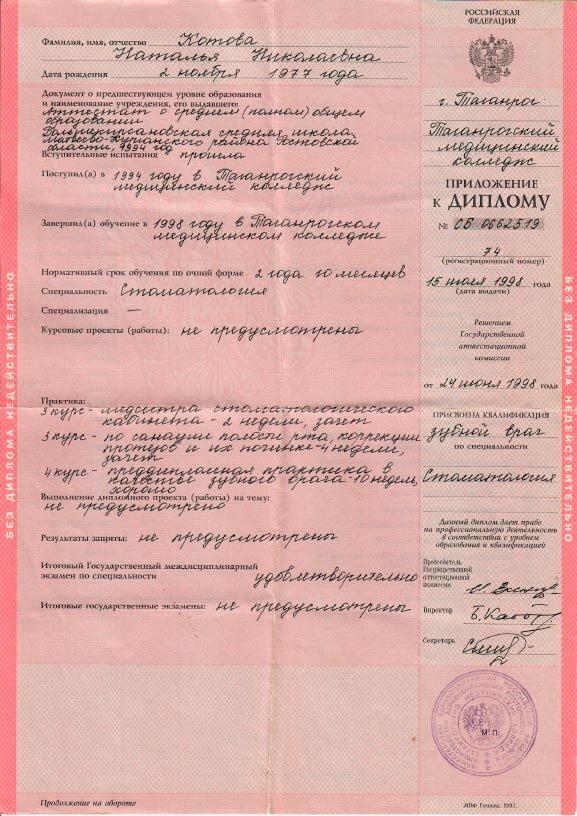 Фамилия, имя, отчество Котова
Наталья Николаевна
Дата рождения 2 ноября 1977 года
Документ о предшествующем уровне образования
и наименование учреждения, его выдавшего:
Аттестат о среднем (полном) общем
образовании
средняя школа
Матвеево-Курганского района Ростовской
области, 1994 год
Вступительные испытания прошла
Поступил(а) в 1994 году в Таганрогский
медицинский колледж
Завершил(а) обучение в 1998 году в Таганрогском
медицинском колледже
Нормативный срок обучения по очной форме 2 года 10 месяцев
Специальность Стоматология
Специализация —
Курсовые проекты (работы): не предусмотрены
Практика:
3 курс - медсестра стоматологического
кабинета - 2 недели, зачет
3 курс - по санации полости рта, коррекции
протезов и их починке - 4 недели,
зачет
4 курс - преддипломная практика в
качестве зубного врача - 10 недель,
хорошо
Выполнение дипломного проекта (работы) на тему:
не предусмотрено
Результаты защиты: не предусмотрены
Итоговый Государственный междисциплинарный
экзамен по специальности удовлетворительно
Итоговые государственные экзамены: не предусмотрены
Продолжение на обороте
РОССИЙСКАЯ
ФЕДЕРАЦИЯ
г. Таганрог
Таганрогский
медицинский
колледж
ПРИЛОЖЕНИЕ
К ДИПЛОМУ
№ СБ 0662519
74
(регистрационный номер)
15 июля 1998 года
(дата выдачи)
Решением
Государственной
аттестационной
комиссии
от 24 июня 1998 года
ПРИСВОЕНА КВАЛИФИКАЦИЯ
зубной врач
по специальности
Стоматология
Данный диплом дает право
на профессиональную деятельность
в соответствии с уровнем
образования и квалификацией
Председатель
Государственной
аттестационной
комиссии
Директор
Секретарь
М.П.
МПФ Гознака. 1997.
БЕЗ ДИПЛОМА НЕДЕЙСТВИТЕЛЬНО
БЕЗ ДИПЛОМА НЕДЕЙСТВИТЕЛЬНО